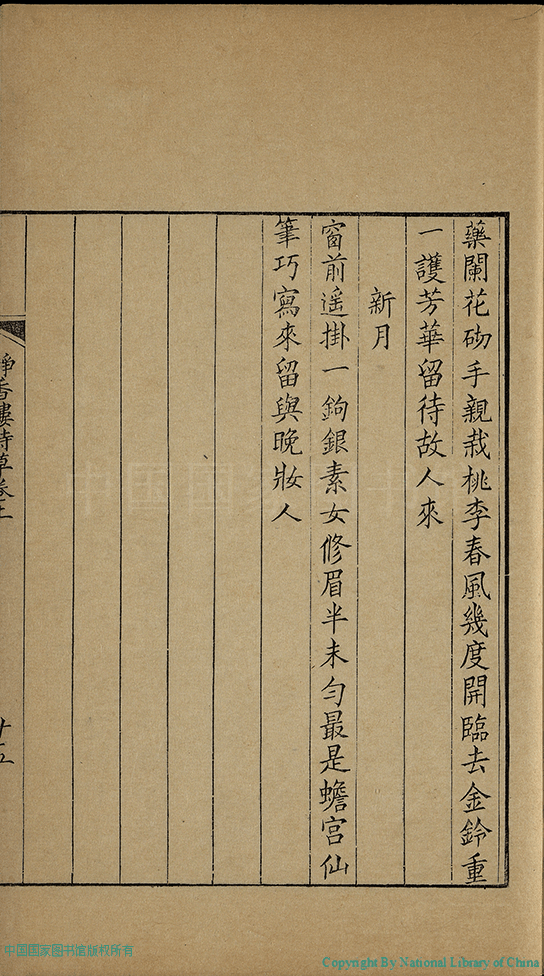 藥闌花砌手親栽桃李春風幾度開臨去金鈴重
一護芳華留待故人來
新月
窗前遥掛一鉤銀素女修眉半未勻最是蟾宫仙
筆巧寫來留與晚妝人
香樓詩草卷上
十五
中国国家图书馆
中国国家图书馆版权所有
Copyright By National Library of China